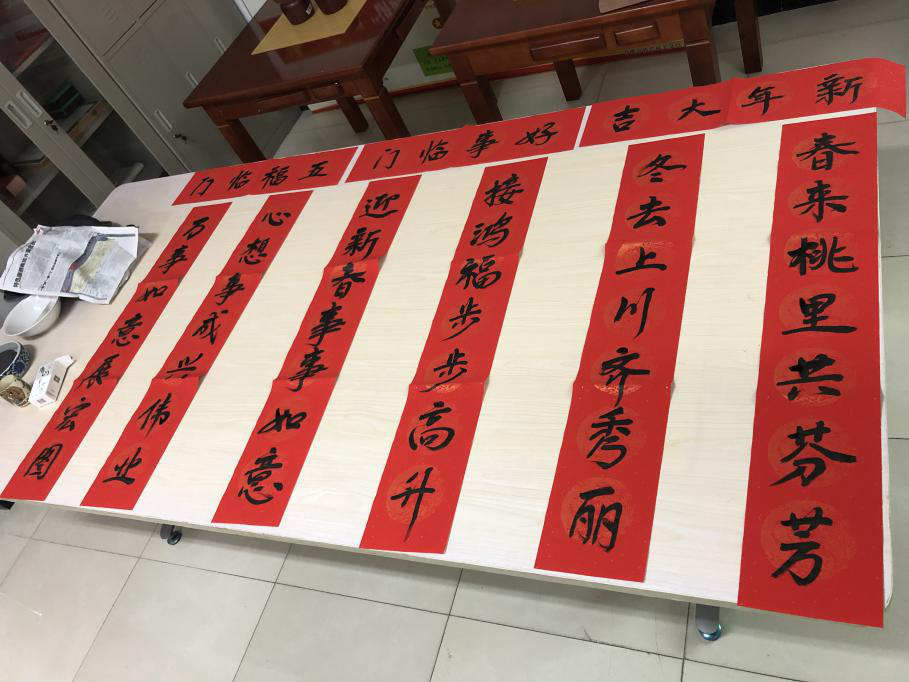 新年大吉
好事临门
五福临门
春来桃里共芬芳
冬去上川齐秀丽
接鸿福步步高升
迎新春事事如意
心想事成兴伟业
万事如意展宏图